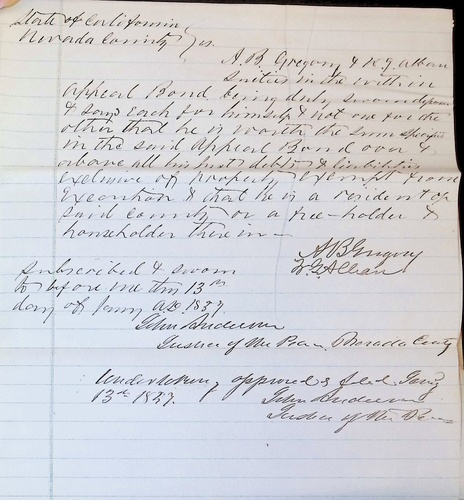 State of California
Nevada County } ss.
A. B. Gregory &
sureties in the within
Appeal Bond being duly sworn depose
& says Each for himself & not one for the
other that he is worth the sum specified
in the said Appeal Bond over &
above all his just debts & liabilities
exclusive of property exempt from
Execution & that he is a resident of
said County or a free-holder &
householder therein —
A B Gregory
Subscribed & sworn
to before me this 13th
day of Jany AD
John Anderson
Justice of the Peace Nevada County
Undertaking approved & filed Jany
13th John Anderson
Justice of the Peace